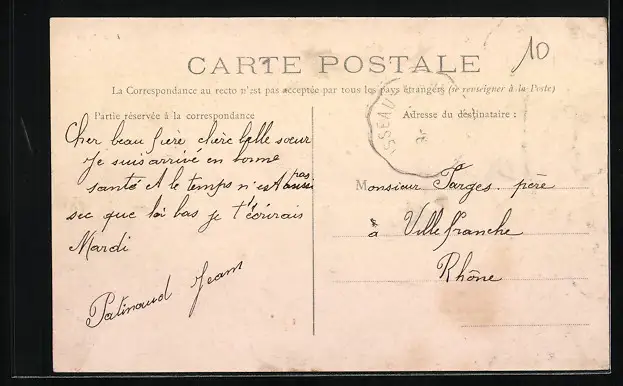 10
CARTE POSTALE
La Correspondance au recto n'est pas acceptée par tous les pays étrangers (se renseigner à la Poste)
Partie réservée à la correspondance
Cher beau frère chère belle sœur
Je suis arrivé en bonne
santé et le temps n'est pas aussi
sec que la bas je t'écrirais
Mardi
Patinaud Jean
SSEAU
Adresse du destinataire :
Monsieur Farges père
à Villefranche
Rhône